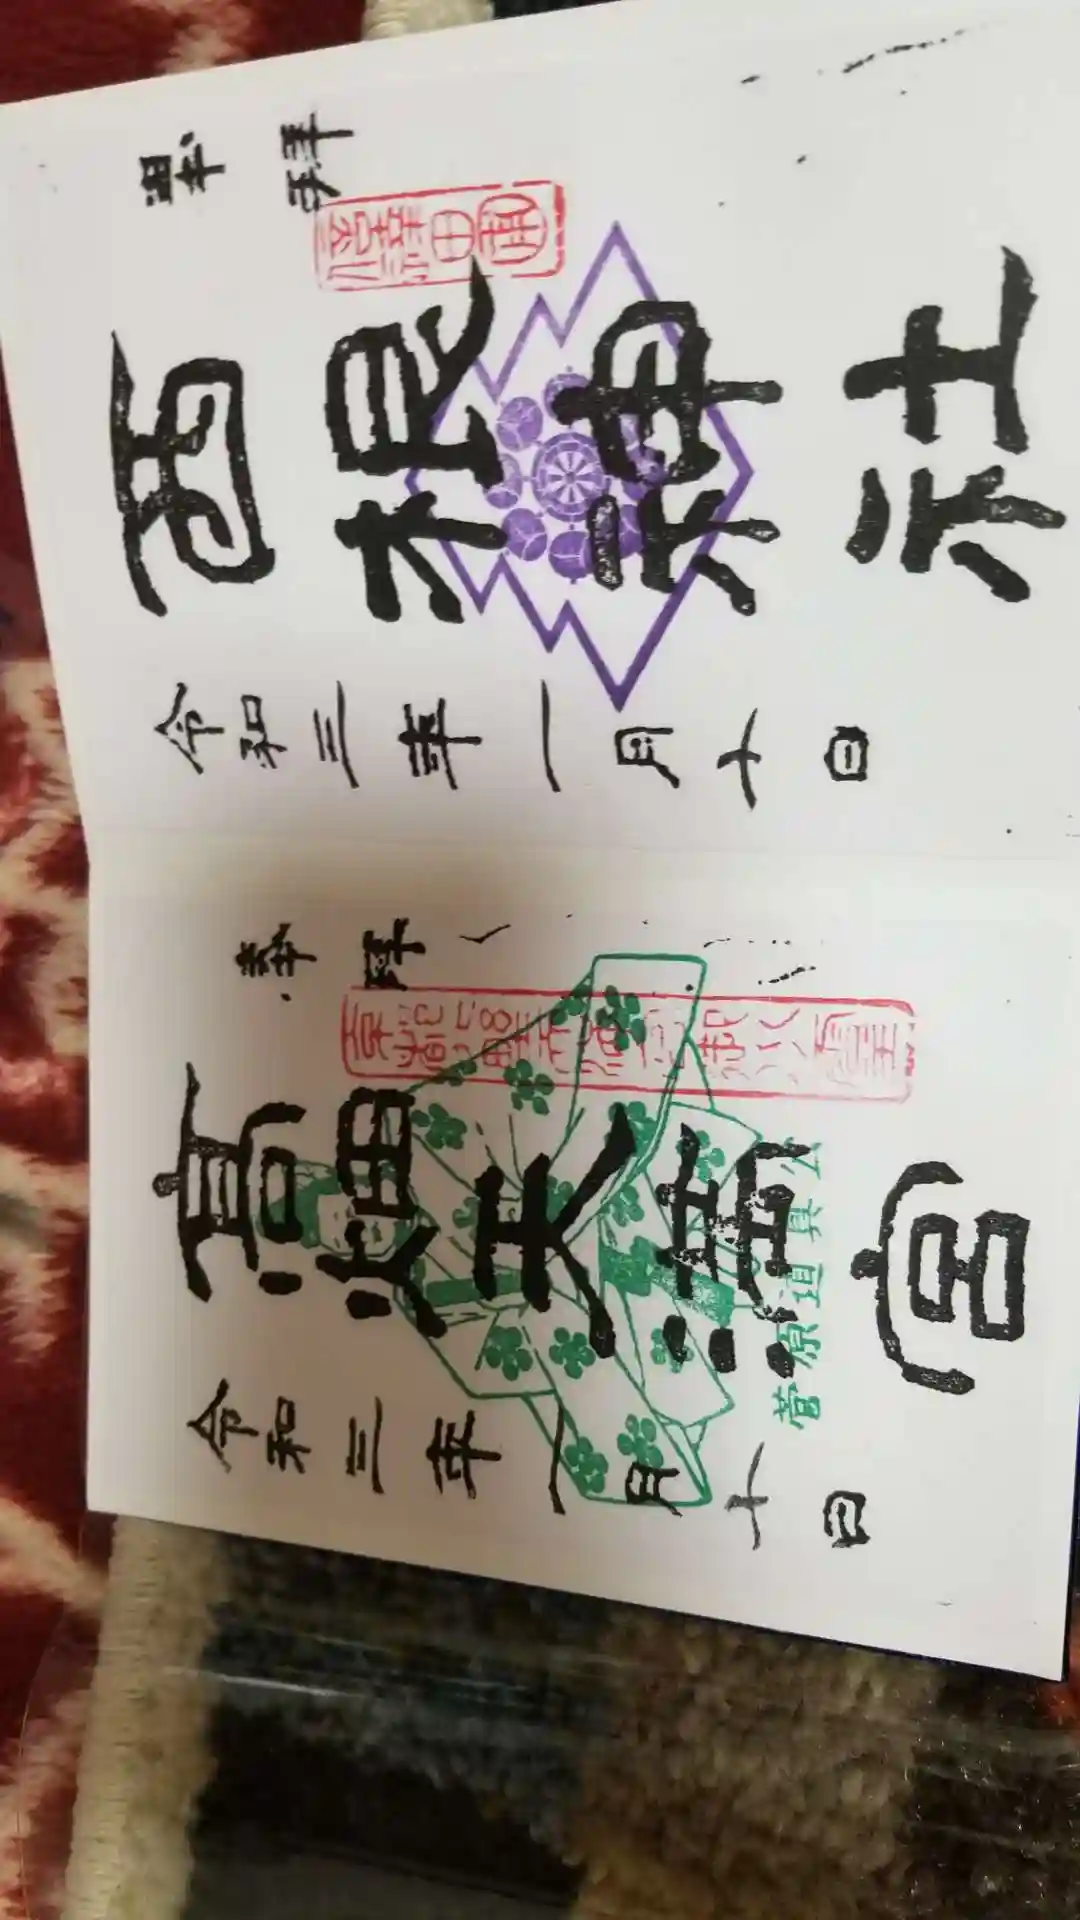 奉拝
西根神社
令和三年一月十日
奉拝
高畑天満宮
菅原道真公
令和三年一月十日